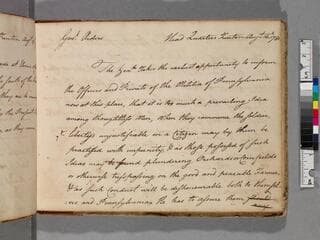 Genl. Orders Head Quarters Trenton Augt.
The Genl. takes the earliest opportunity to inform
the Officers and Privates of the Militia of Pennsylvania
now at this place, that it is too much a prevailing Idea
among thoughtless Men, When they commence the soldier,
Liberties unjustifiable in a Citizen may by them be
practised with impunity, & as those possessed of such
Ideas may be found plundering Orchards Cornfields
or otherwise trespassing on the good and peaceable Farmer,
& as such conduct will be dishonourable both to themsel-
ves and Pennsylvania He has to assure them